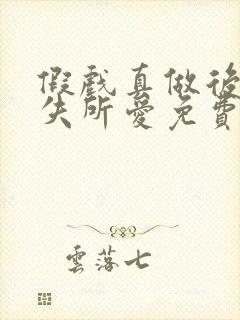 假戲真做後
失所愛免費
雲落七